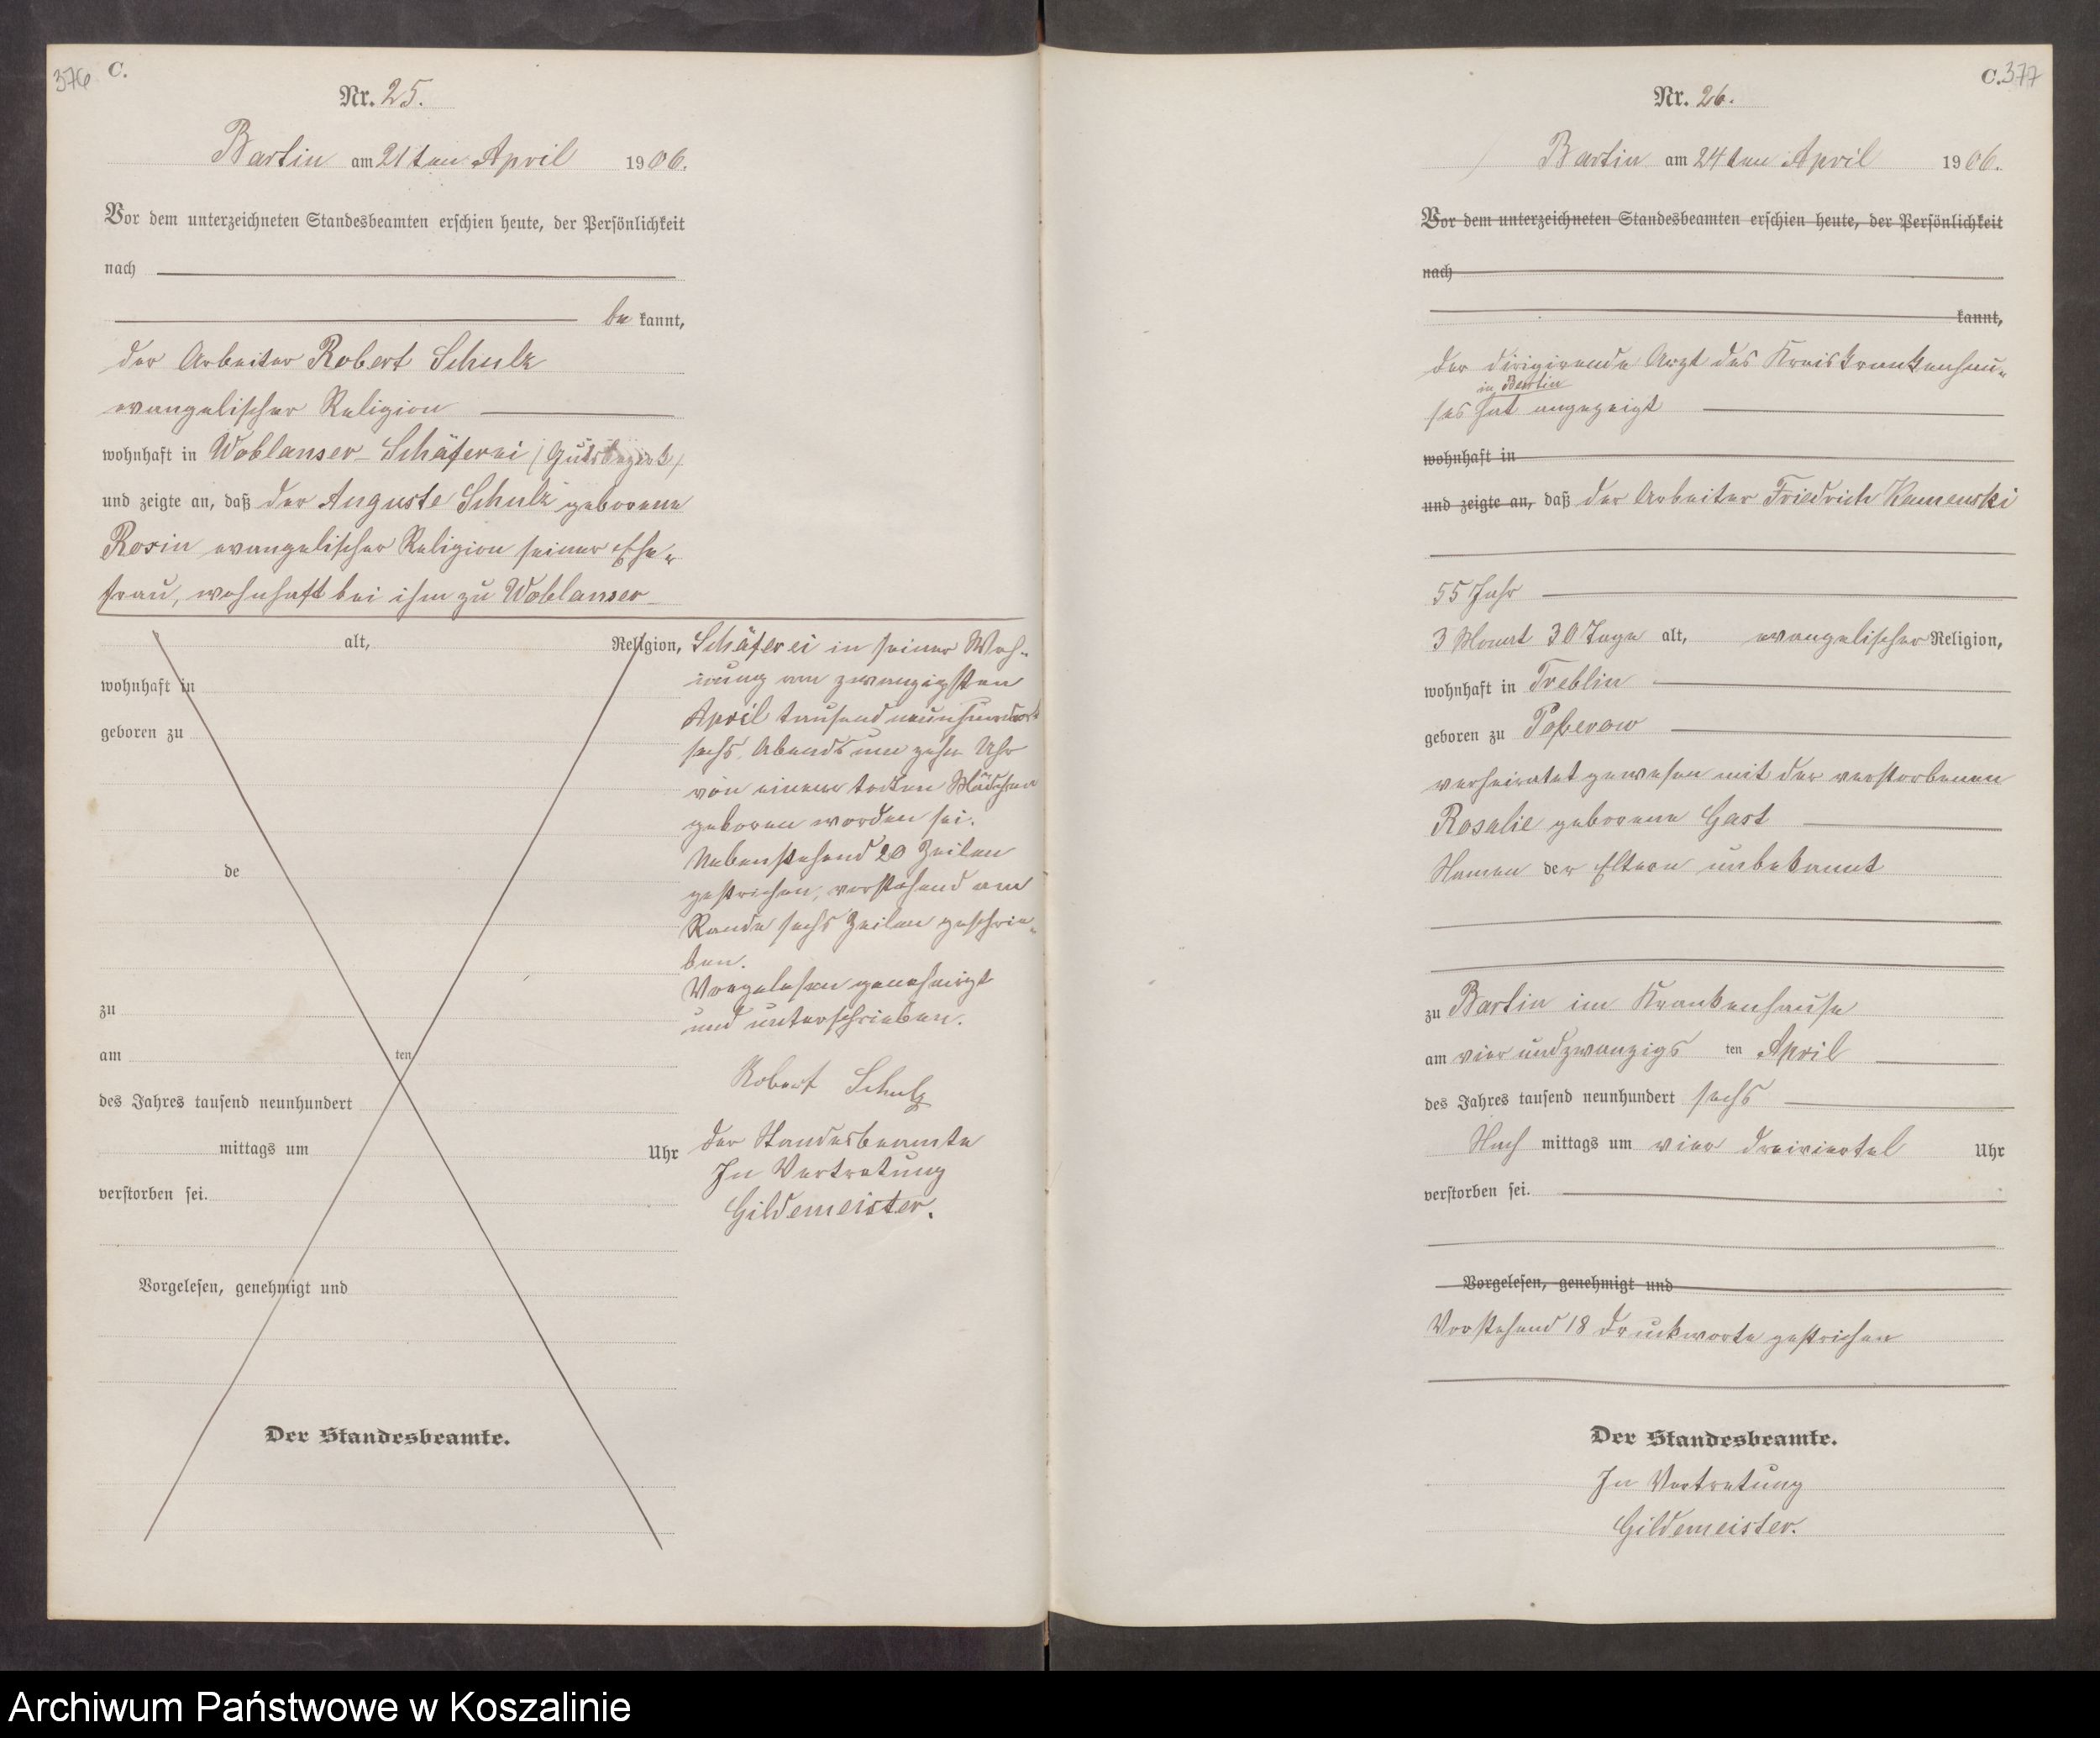 376 C.
Nr. 25.
Bartin am 21ten April 1906.
Vor dem unterzeichneten Standesbeamten erschien heute, der Persönlichkeit
nach
be kannt,
der Arbeiter Robert Schulz
evangelischer Religion
wohnhaft in Woblanser-Schäferei (Gutsbezirk)
und zeigte an, daß der Auguste Schulz geborene
Rosin evangelischer Religion seiner Ehe-
frau, wohnhaft bei ihm zu Woblanser-
alt, Religion,
wohnhaft in
geboren zu
de
zu
am ten
des Jahres tausend neunhundert
mittags um Uhr
verstorben sei.
Vorgelesen, genehmigt und
Der Standesbeamte.
Schäferei in seiner Woh-
nung am zwanzigsten
April tausend neunhundert
sechs Abends um zehn Uhr
von einem todten Mädchen
geboren worden sei.
Nebenstehend 20 Zeilen
gestrichen, vorstehend am
Rande sechs Zeilen geschrie-
ben.
Vorgelesen genehmigt
und unterschrieben.
Robert Schulz
Der Standesbeamte
In Vertretung
Gildemeister.
C. 377
Nr. 26.
Bartin am 24ten April 1906.
Vor dem unterzeichneten Standesbeamten erschien heute, der Persönlichkeit
nach
kannt,
der dirigirende Arzt des Kreiskrankenhau-
in Bartin
ses hat angezeigt
wohnhaft in
und zeigte an, daß der Arbeiter Friedrich Kamenski
55 Jahr
3 Monat 30 Tage alt, evangelischer Religion,
wohnhaft in Treblin
geboren zu Poberow
verheiratet gewesen mit der verstorbenen
Rosalie geborene Gast
Namen der Eltern unbekannt
zu Bartin im Krankenhause
am vier und zwanzigs ten April
des Jahres tausend neunhundert sechs
Nach mittags um vier dreiviertel Uhr
verstorben sei.
Vorgelesen, genehmigt und
Vorstehend 18 Druckworte gestrichen
Der Standesbeamte.
In Vertretung
Gildemeister.
Archiwum Państwowe w Koszalinie